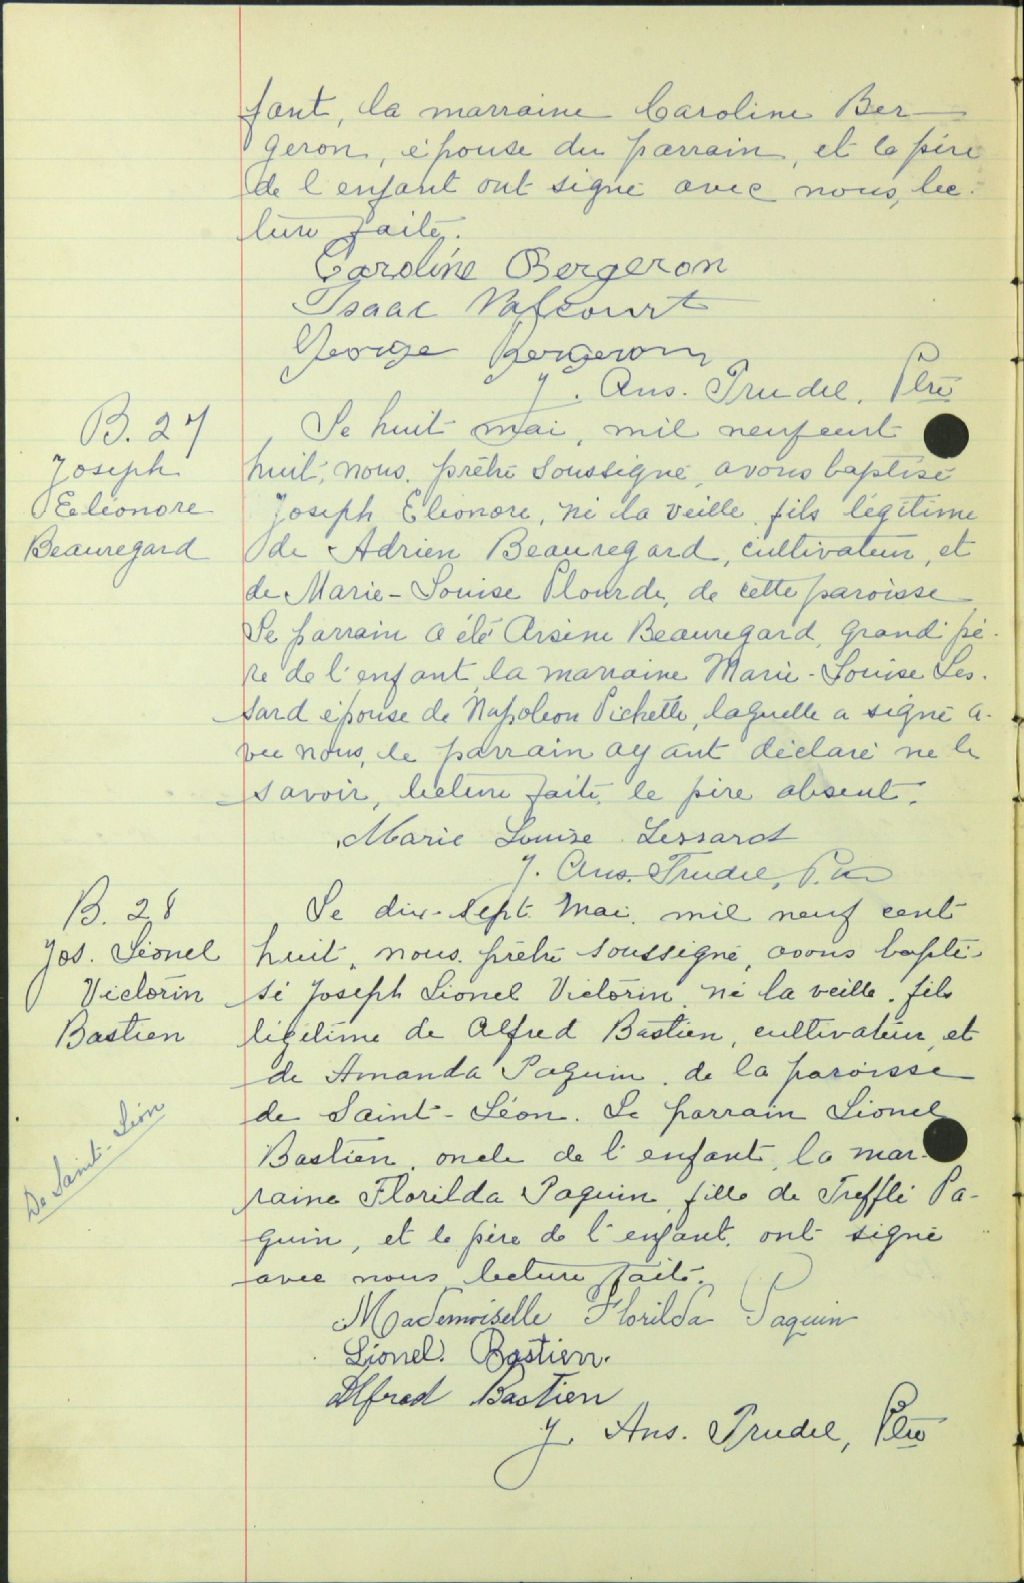 fant, la marraine Caroline Ber-
geron, épouse du parrain, et le père
de l'enfant ont signé avec nous, lec-
ture faite.
Caroline Bergeron
Isaac Valcourt
George Bergeron
J. Ans. Trudel, Ptre
B. 27
Joseph
Eléonore
Beauregard
Le huit mai, mil neuf cent
huit, nous, prêtre soussigné, avons baptisé
Joseph Eléonore, né la veille, fils légitime
de Adrien Beauregard, cultivateur, et
de Marie-Louise Plourde, de cette paroisse.
Le parrain a été Arsène Beauregard, grand pè-
re de l'enfant, la marraine Marie-Louise Les-
sard épouse de Napoléon Pichette, laquelle a signé a-
vec nous, le parrain ayant déclaré ne le
savoir, lecture faite, le père absent.
Marie Louise Lessard
J. Ans. Trudel, Ptre
B. 28
Jos. Lionel
Victorin
Bastien
De Saint-Léon
Le dix-sept mai, mil neuf cent
huit, nous, prêtre soussigné, avons bapti-
sé Joseph Lionel Victorin, né la veille, fils
légitime de Alfred Bastien, cultivateur, et
de Amanda Paquin, de la paroisse
de Saint-Léon. Le parrain Lionel
Bastien, oncle de l'enfant, la mar-
raine Florilda Paquin, fille de Trefflé Pa-
quin, et le père de l'enfant, ont signé
avec nous, lecture faite.
Mademoiselle Florilda Paquin
Lionel Bastien.
Alfred Bastien
J. Ans. Trudel, Ptre